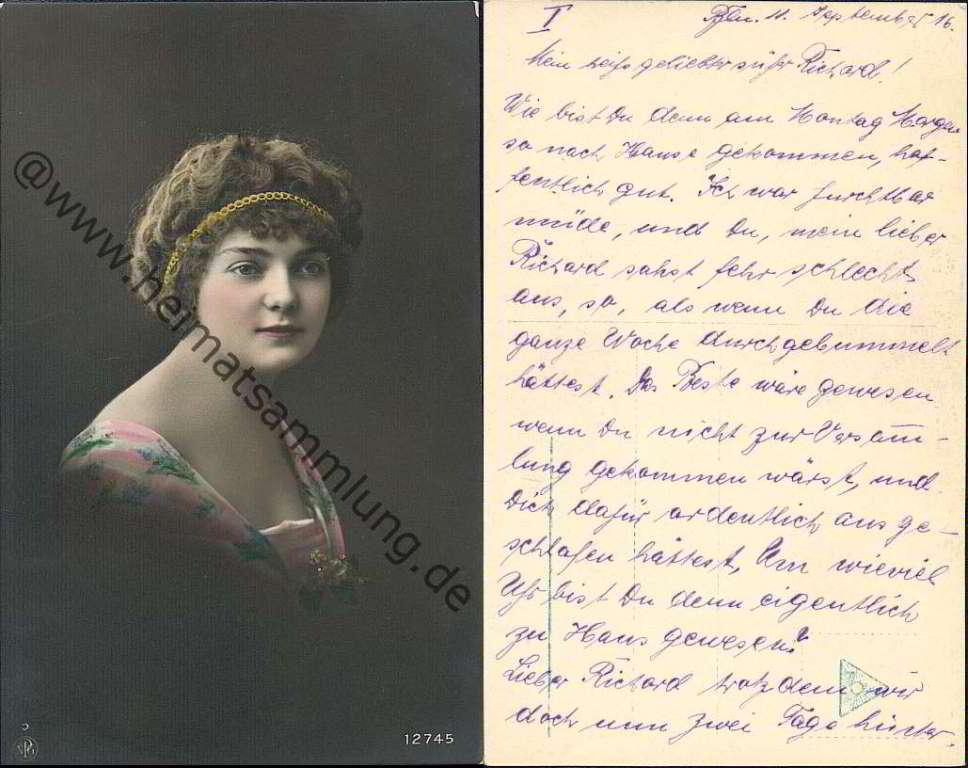 @www.heimatsammlung.de
12745
I
Bln. 11. September 16.
Mein heißgeliebter süßer Richard!
Wie bist Du denn am Montag Morgen
so nach Hause gekommen, hof-
fentlich gut. Ich war furchtbar
müde, und Du, mein lieber
Richard sahst sehr schlecht
aus, so, als wenn Du die
ganze Woche durchgebummelt
hättest. Das Beste wäre gewesen
wenn Du nicht zur Versamm-
lung gekommen wärst, und
Dich dafür ordentlich ausge-
schlafen hättest, Um wieviel
Uhr bist Du denn eigentlich
zu Haus gewesen?
Lieber Richard trotzdem wir
doch nun zwei Tage hinter